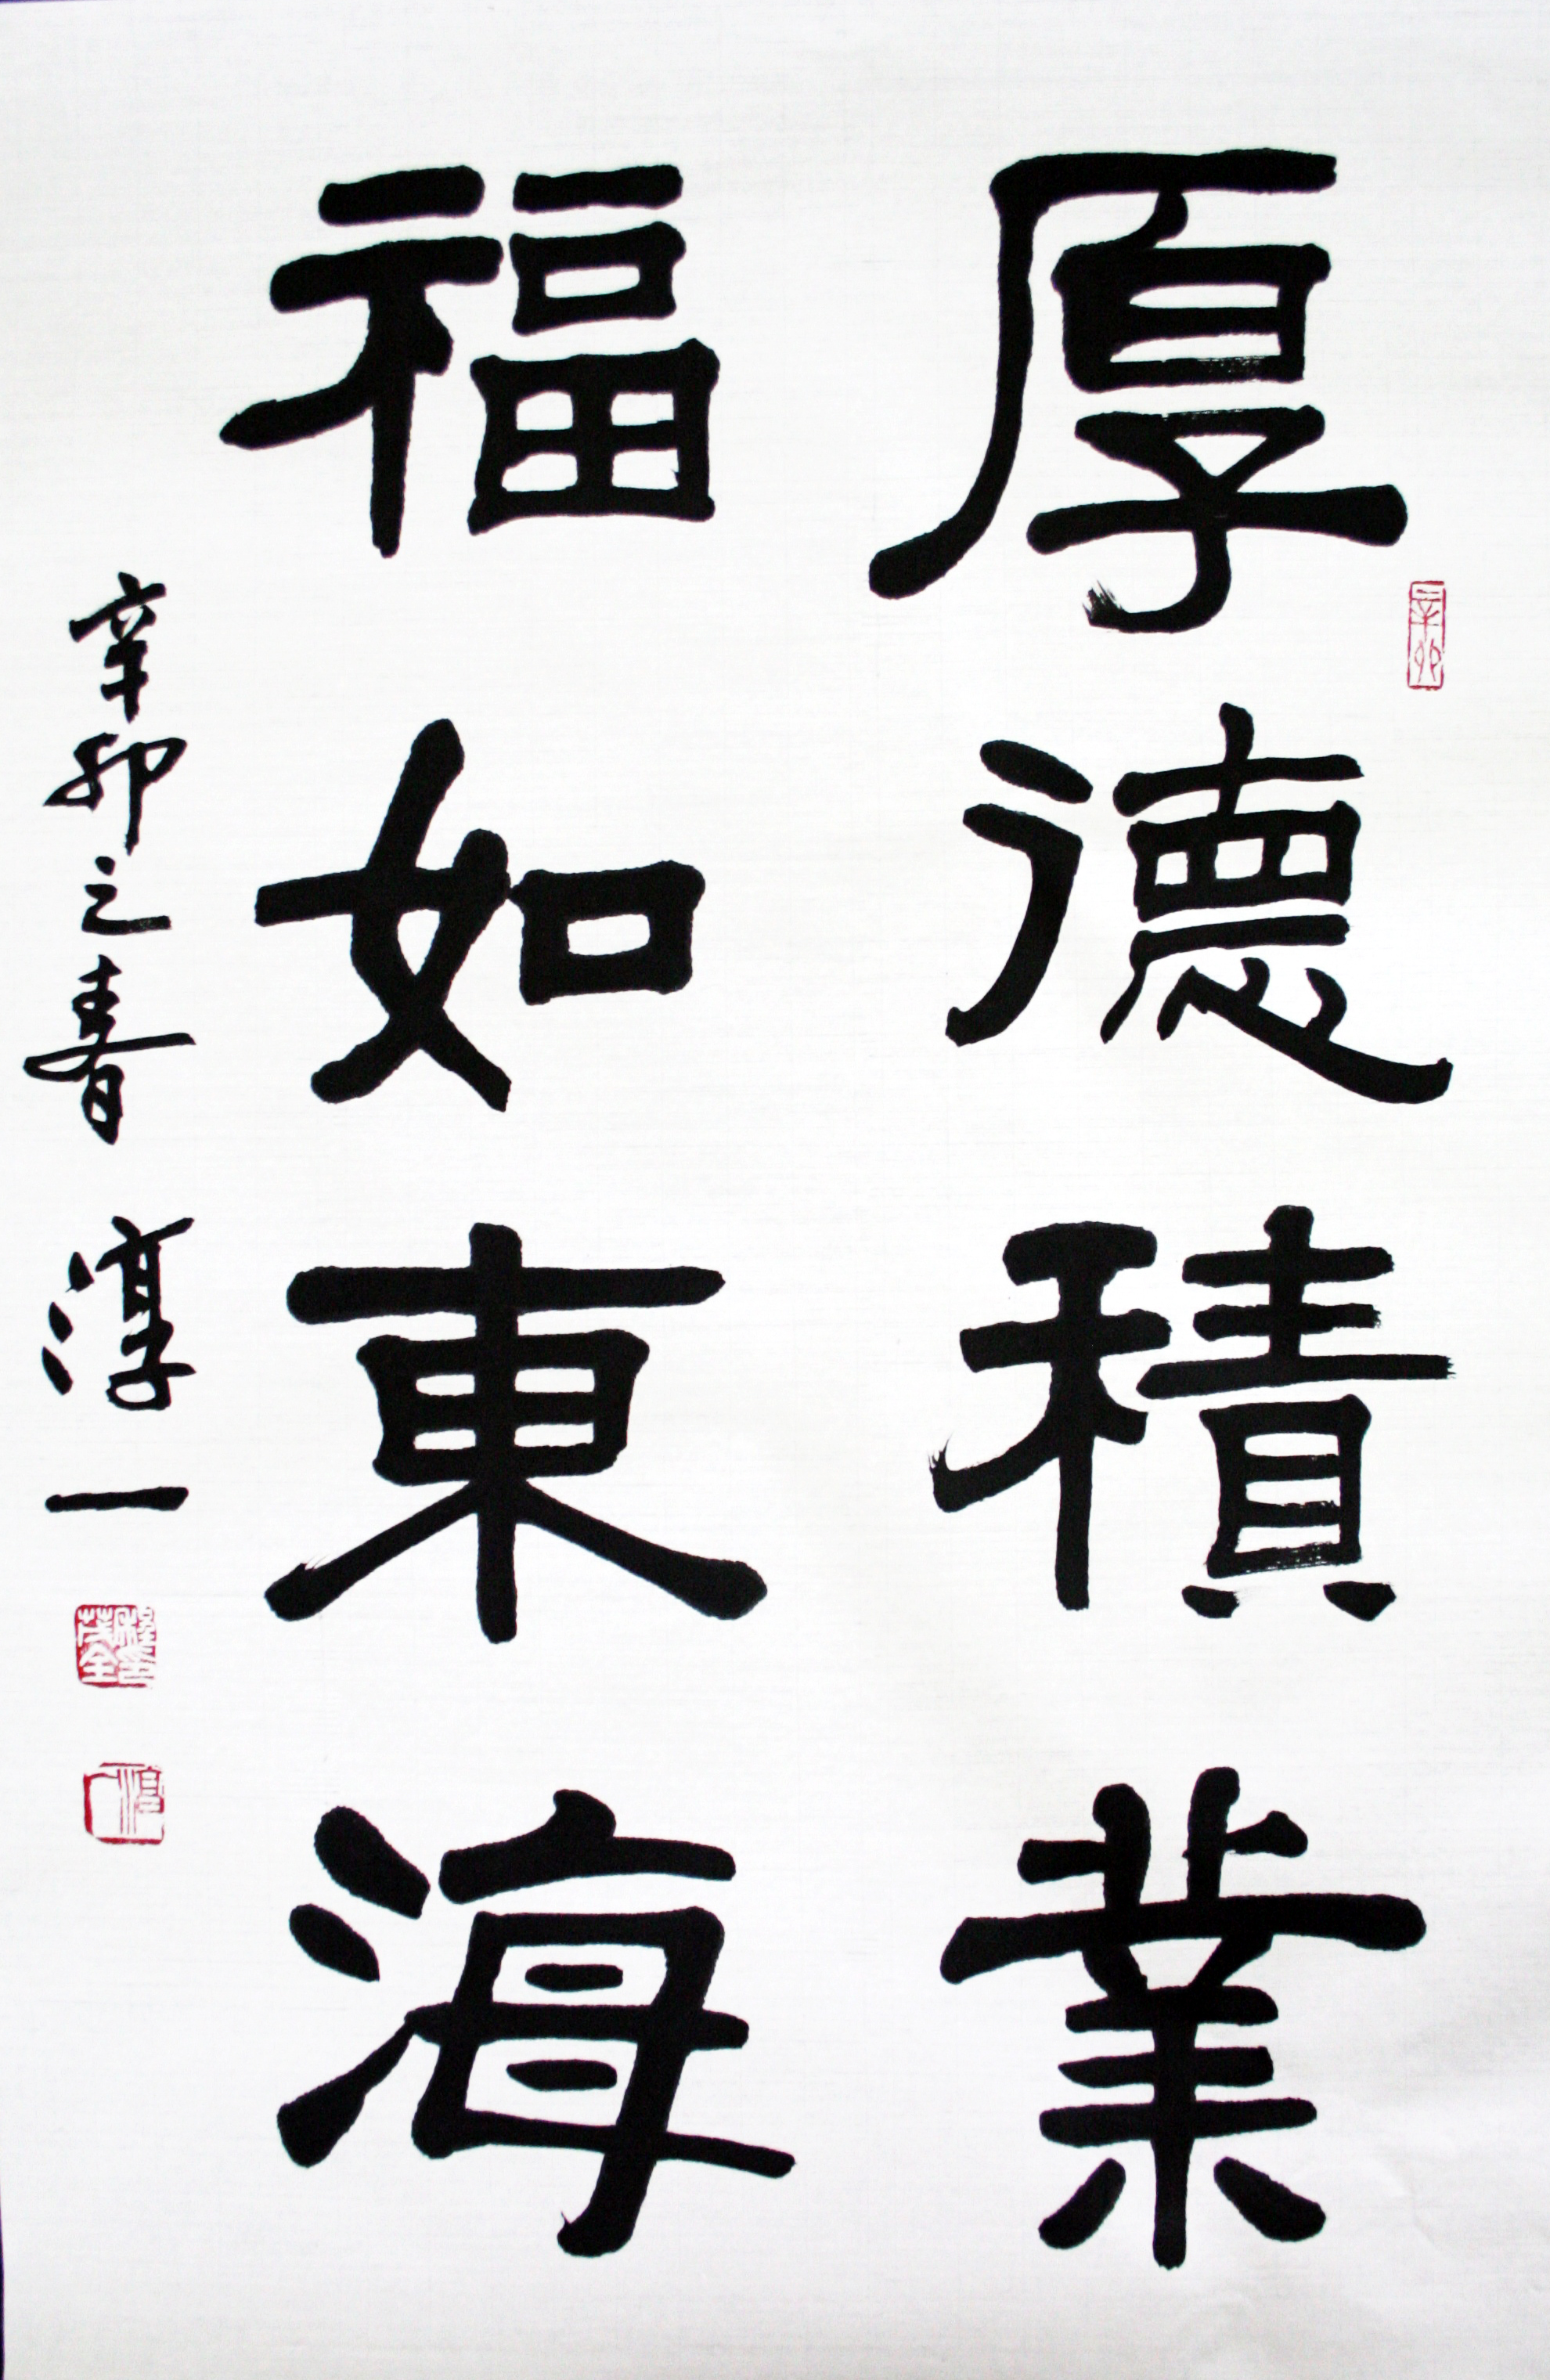 厚德積業
福如東海
辛卯之春 淳一
辛卯